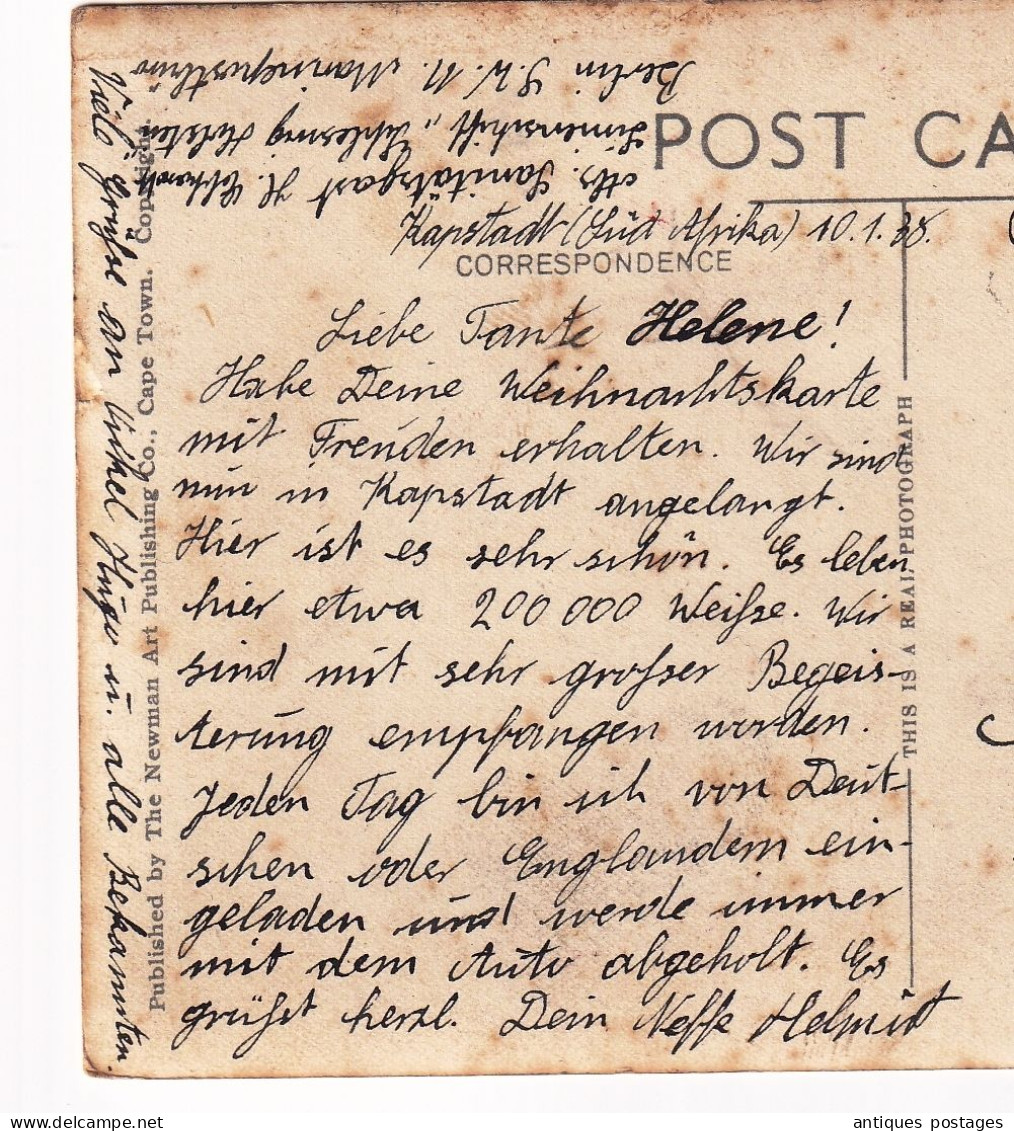 POST CA
Abs. Sanitätsgast H.
Linienschiff „Schleswig Holstein
Berlin S.W.11. Marinepostbüro
Kapstadt (Süd Afrika) 10.1.38.
CORRESPONDENCE
Liebe Tante Helene!
Habe Deine Weihnachtskarte
mit Freuden erhalten. Wir sind
nun in Kapstadt angelangt.
Hier ist es sehr schön. Es leben
hier etwa 200 000 Weiße. Wir
sind mit sehr großer Begeis-
terung empfangen worden.
Jeden Tag bin ich von Deut-
schen oder Englandern ein-
geladen und werde immer
mit dem Auto abgeholt. Es
grüßt herzl. Dein Neffe Helmut
Viele Grüße an Onkel Hugo u. alle Bekannten.
Published by The Newman Art Publishing Co., Cape Town. Copyright.
THIS IS A REAL PHOTOGRAPH
antiques postages